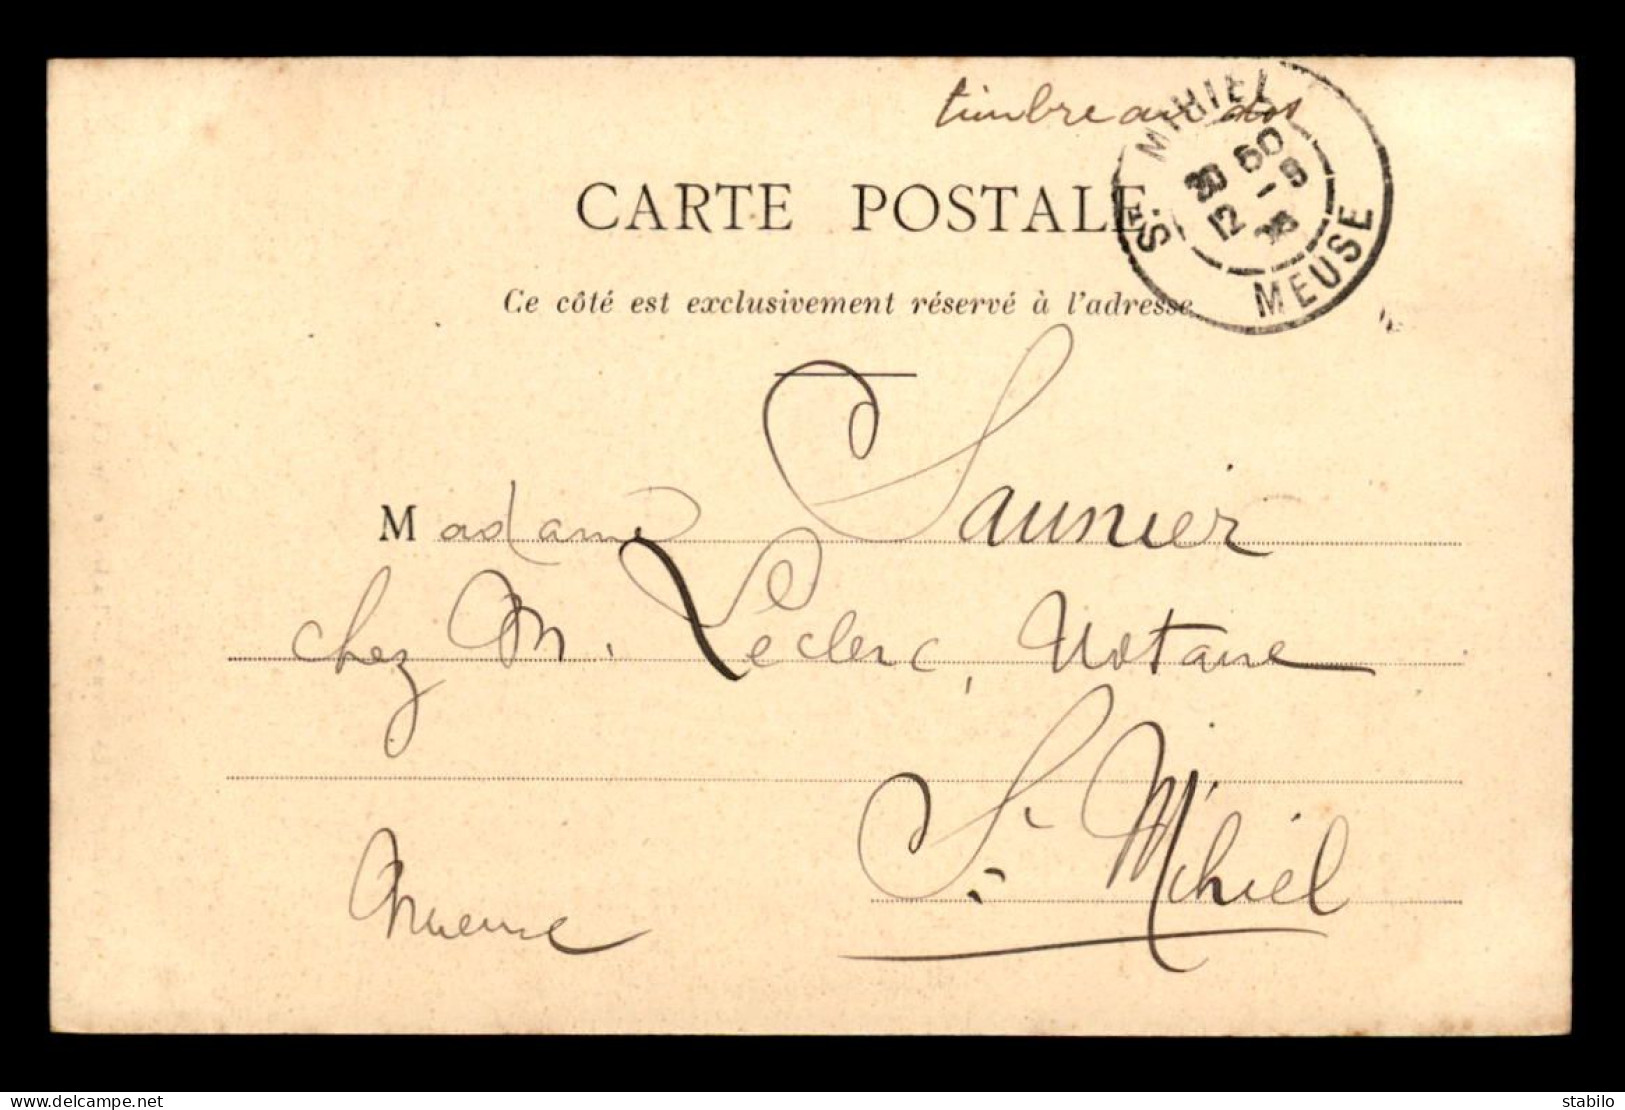 timbre au dos
CARTE POSTALE
Ce côté est exclusivement réservé à l'adresse
ST MIHIEL
12 -9
MEUSE
Madame Saunier
chez M. Leclerc, Notaire
St Mihiel
Meuse
www.delcampe.net
stabilo